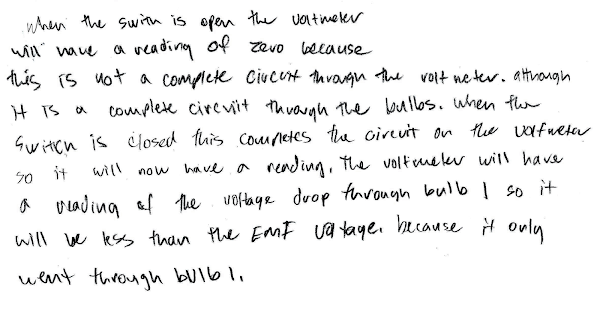 When the switch is open the voltmeter
will have a reading of zero because
this is not a complete circuit through the volt meter. although
it is a complete circuit through the bulbs. When the
switch is closed this completes the circuit on the voltmeter
so it will now have a reading. The voltmeter will have
a reading of the voltage drop through bulb 1 so it
will be less than the EMF voltage. because it only
went through bulb 1.